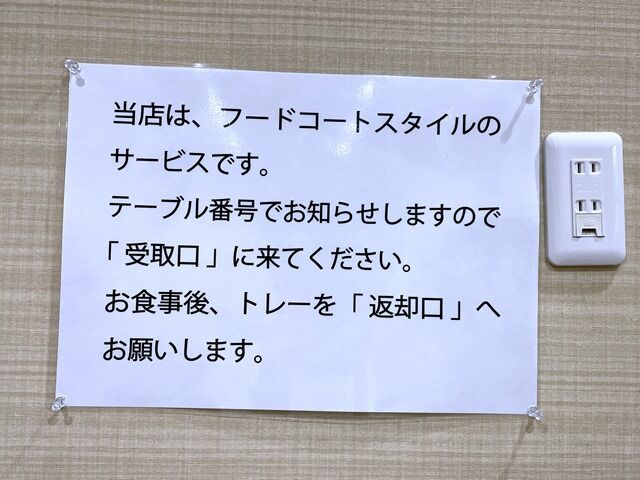 当店は、フードコートスタイルの
サービスです。
テーブル番号でお知らせしますので
「 受取口 」に来てください。
お食事後、トレーを「 返却口 」へ
お願いします。